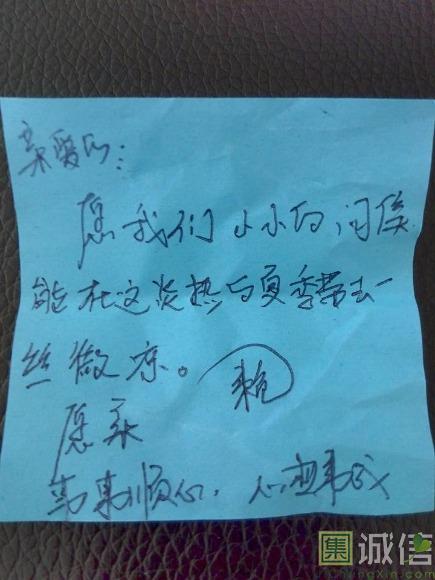 亲爱的:
愿我们小小的问候
能在这炎热的夏季带去一
丝微凉。
愿亲
事事顺心,心想事成
集 诚信